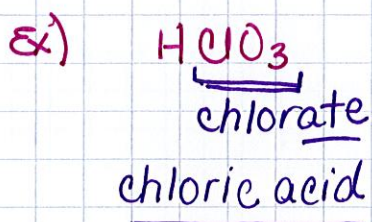 Ex) HClO₃
chlorate
chloric acid